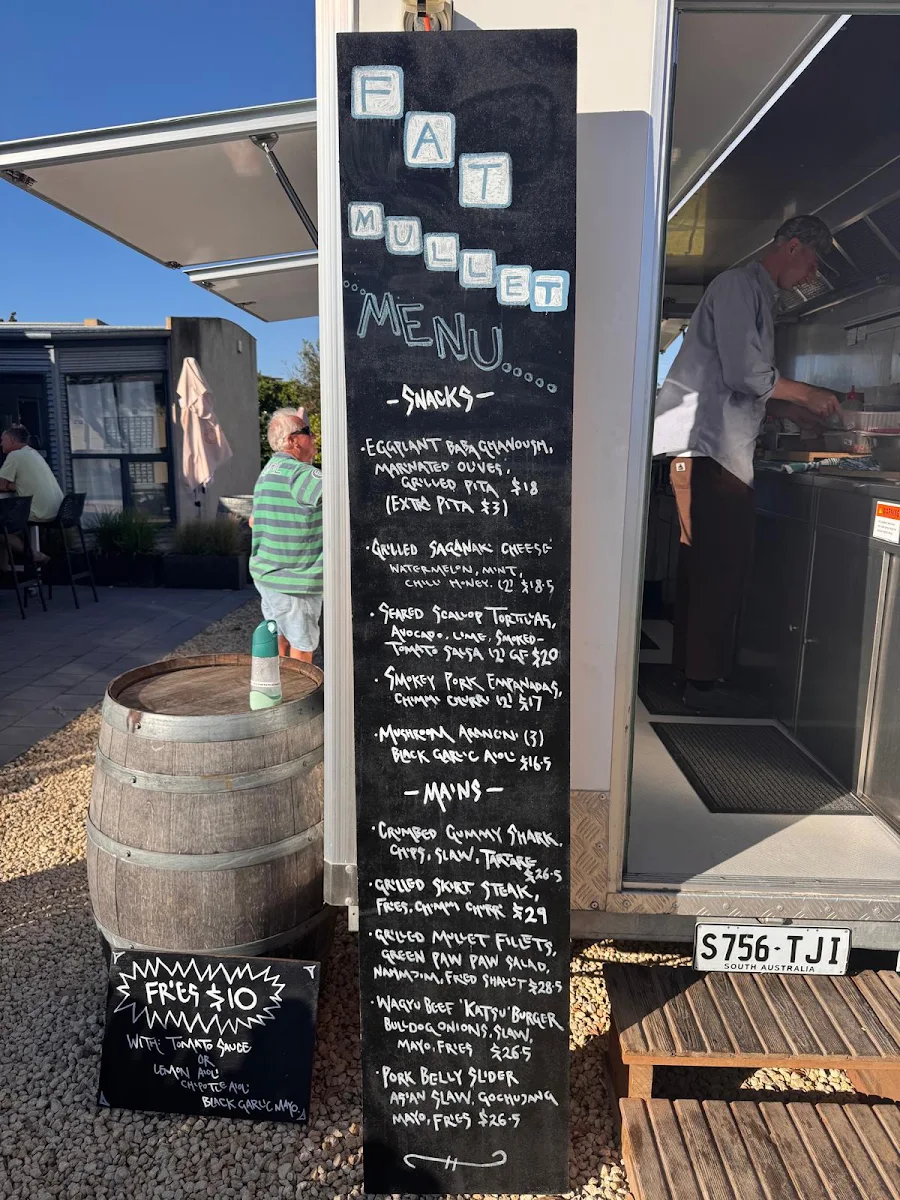 FAT
MULLET
MENU
-SNACKS-
·EGGPLANT BABAGHANOUSH,
MARINATED OLIVES,
GRILLED PITA $18
(EXTRA PITA $3)
·GRILLED SAGANAKI CHEESE
WATERMELON, MINT,
CHILLI HONEY. (2) $18.5
·SEARED SCALLOP TORTILLAS,
AVOCADO, LIME, SMOKED-
TOMATO SALSA (2) GF $20
·SMOKEY PORK EMPANADAS,
CHIMMI CHURRI (2) $17
·MUSHROOM ARANCINI (3)
BLACK GARLIC AIOLI $16.5
-MAINS-
·CRUMBED GUMMY SHARK,
CHIPS, SLAW, TARTARE
$26.5
·GRILLED SKIRT STEAK,
FRIES, CHIMMI CHURRI $29
·GRILLED MULLET FILLETS,
GREEN PAW PAW SALAD,
NAHM JIM, FRIED SHALLOT $28.5
·WAGYU BEEF 'KATSU' BURGER
BULLDOG ONIONS, SLAW,
MAYO, FRIES $26.5
·PORK BELLY SLIDER
ASIAN SLAW, GOCHUJANG
MAYO, FRIES $26.5
FRIES $10
WITH: TOMATO SAUCE
OR
LEMON AIOLI
CHIPOTLE AIOLI
BLACK GARLIC MAYO.
S756·TJI
SOUTH AUSTRALIA